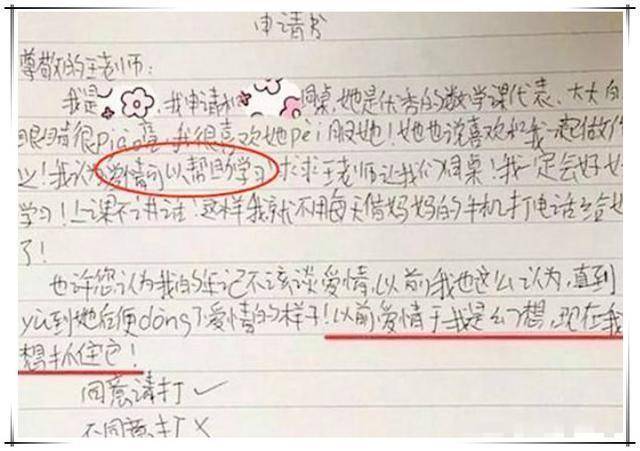 申请书
尊敬的王老师:
我是 ,我申请和 同桌,她是优秀的数学课代表、大大的
眼睛很piao亮,我很喜欢她pèi服她!她也说喜欢和我一起做作
业!我认为爱情可以帮助学习 求求王老师让我们同桌!我一定会好好
学习!上课不讲话!这样我就不用每天借妈妈的手机打电话给她
了!
也许您认为我的年记不该谈爱情,以前我也这么认为,直到
yù到她后便dǒng了爱情的样子!以前爱情于我是幻想,现在我
想抓住它!
同意请打✓
不同意打×